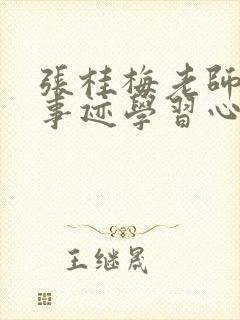 張桂梅老師
事迹學習心
王继晟